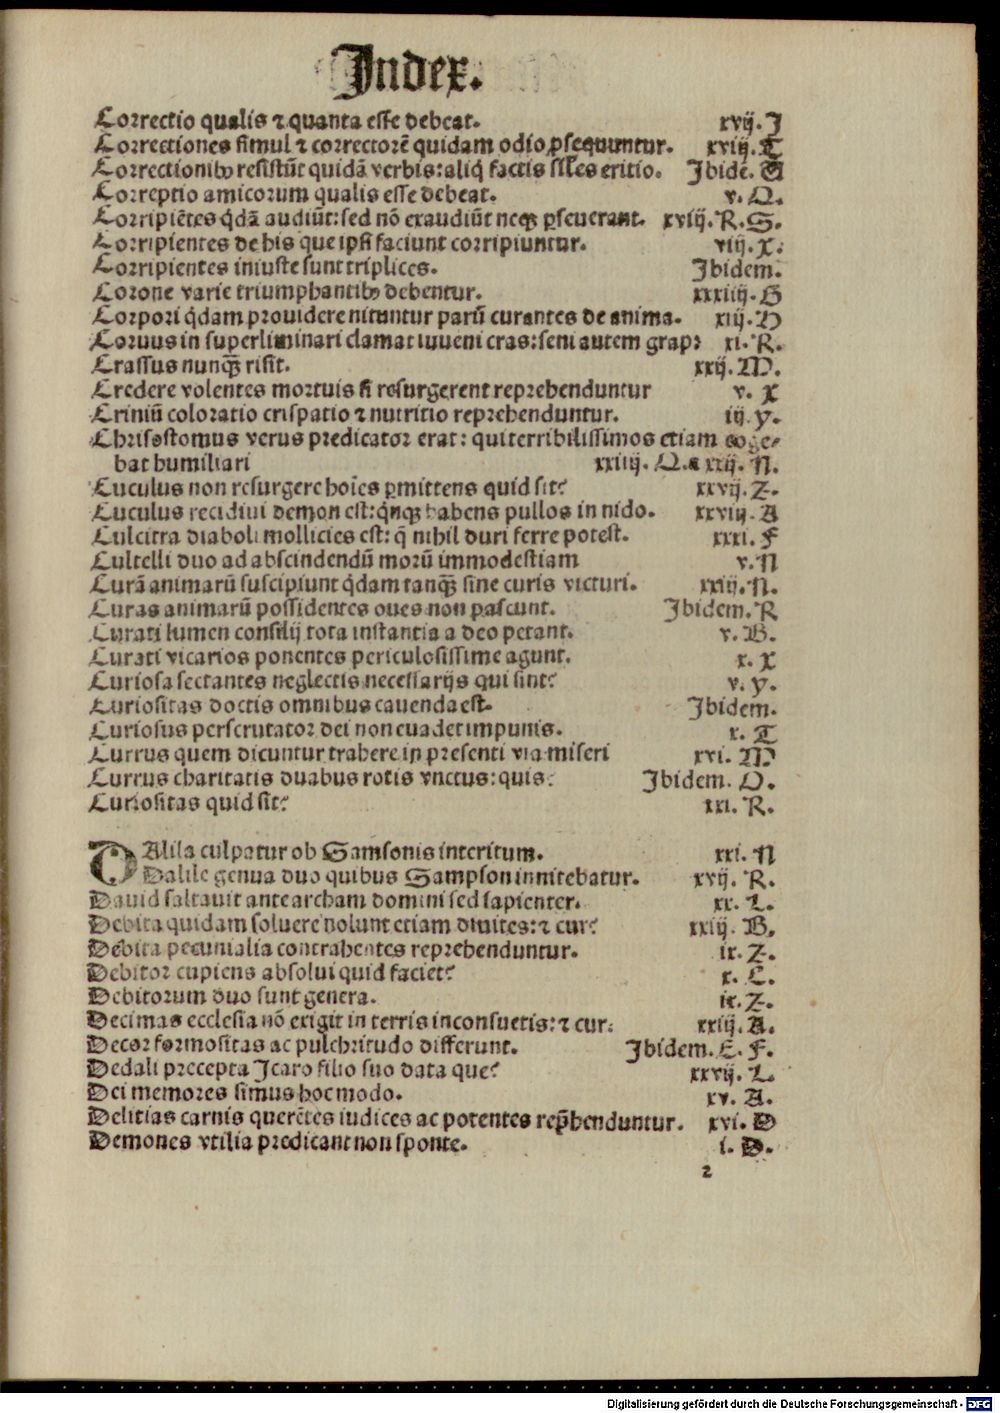 Index.
Correctio qualis ⁊ quanta esse debeat. xvij. J
Correctiones simul ⁊ correctorē quidam odio ꝓsequuntur. xviij. T
Correctionibꝰ resistūt quidā verbis: aliq̇ factis siłes eritio. Jbidē. V
Correptio amicorum qualis esse debeat. v. Q.
Corripiētes q̇dā audiūt: sed nō exaudiūt neqꝫ ꝑseuerant. xviij. R. S.
Corripientes de his que ipsi faciunt corripiuntur. viij. X.
Corripientes iniuste sunt triplices. Jbidem.
Corone varie triumphantibꝰ debentur. xxxiiij. G
Corpori q̇dam prouidere nituntur parū curantes de anima. xij. D
Coruus in superliminari clamat iuueni cras: seni autem grap: xi. R.
Crassus nunqꝫ̄ risit. xxij. M.
Credere volentes mortuis si resurgerent reprehenduntur v. X
Criniū coloratio crispatio ⁊ nutritio reprehenduntur. iij. y.
Chrisostomus verus predicator erat: qui terribilissimos etiam coge⸗
bat humiliari xxiiij. Q. ⁊ xxij. N.
Cuculus non resurgere hoīes ꝑmittens quid sit? xxvij. Z.
Cuculus recidiui demon est: q̇nqꝫ habens pullos in nido. xxviij. A
Culcitra diaboli mollicies est: q̄ nihil duri ferre potest. xxxi. F
Cultelli duo ad abscindendū morū immodestiam v. N
Curā animarū suscipiunt q̇dam tanqꝫ̄ sine curis victuri. xxiij. N.
Curas animarū possidentes oues non pascunt. Jbidem. R
Curati lumen consilij tota instantia a deo petant. v. B.
Curati vicarios ponentes periculosissime agunt. x. X
Curiosa sectantes neglectis necessarijs qui sint? v. y.
Curiositas doctis omnibus cauenda est. Jbidem.
Curiosus perscrutator dei non euadet impunis. x. T
Currus quem dicuntur trahere in presenti via miseri xvi. M
Currus charitatis duabus rotis vnctus: quis? Jbidem. O.
Curiositas quid sit? xxi. R.
DAlila culpatur ob Samsonis interitum. xxi. N
Dalile genua duo quibus Sampson innitebatur. xvij. R.
Dauid saltauit ante archam domini sed sapienter. xx. L.
Debita quidam soluere nolunt etiam diuites: ⁊ cur? xxiij. B.
Debita pecunialia contrahentes reprehenduntur. ix. Z.
Debitor cupiens absolui quid faciet? x. C.
Debitorum duo sunt genera. ix. Z.
Decimas ecclesia nō exigit in terris inconsuetis: ⁊ cur: xxiij. A.
Decor formositas ac pulchritudo differunt. Jbidem. E. F.
Dedali precepta Jcaro filio suo data que? xxvij. L.
Dei memores simus hoc modo. xv. A.
Delitias carnis querētes iudices ac potentes rep̄henduntur. xvi. D
Demones vtilia predicant non sponte. i. D.
2
Digitalisierung gefördert durch die Deutsche Forschungsgemeinschaft - DFG